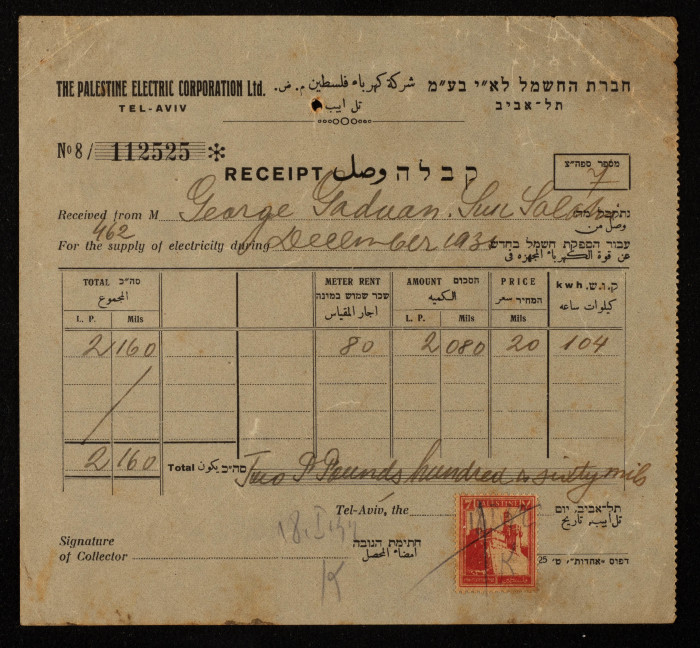 THE PALESTINE ELECTRIC CORPORATION Ltd. شركة كهرباء فلسطين م. ض. חברת החשמל לא״י בע״מ
TEL-AVIV تل ابيب תל-אביב
No 8/ 112525 *
RECEIPT وصل קבלה
מספר ספה״צ
7
Received from M George נתקבל מה
وصل من
462
For the supply of electricity during December 193 עבור הספקת חשמל בחדש
عن قوة الكهرباء المجهزه في
TOTAL סה״כ METER RENT AMOUNT הסכום PRICE kwh ק.ו.ש.
المجموع שכר שמוש במונה الكميه המחיר سعر كيلوات ساعه
اجار المقياس
L. P. Mils L. P. Mils
2 160 80 2 080 20 104
2 160 Total סה״כ يكون Two P Pounds hundred & sixty mils
Tel-Aviv, the תל-אביב, יום
تل ابيب تاريخ
18.I
Signature חתימת הגובה
of Collector امضاء المحصل
K
PALESTINE
7
K
דפוס ״אחדות״, ט׳ 25